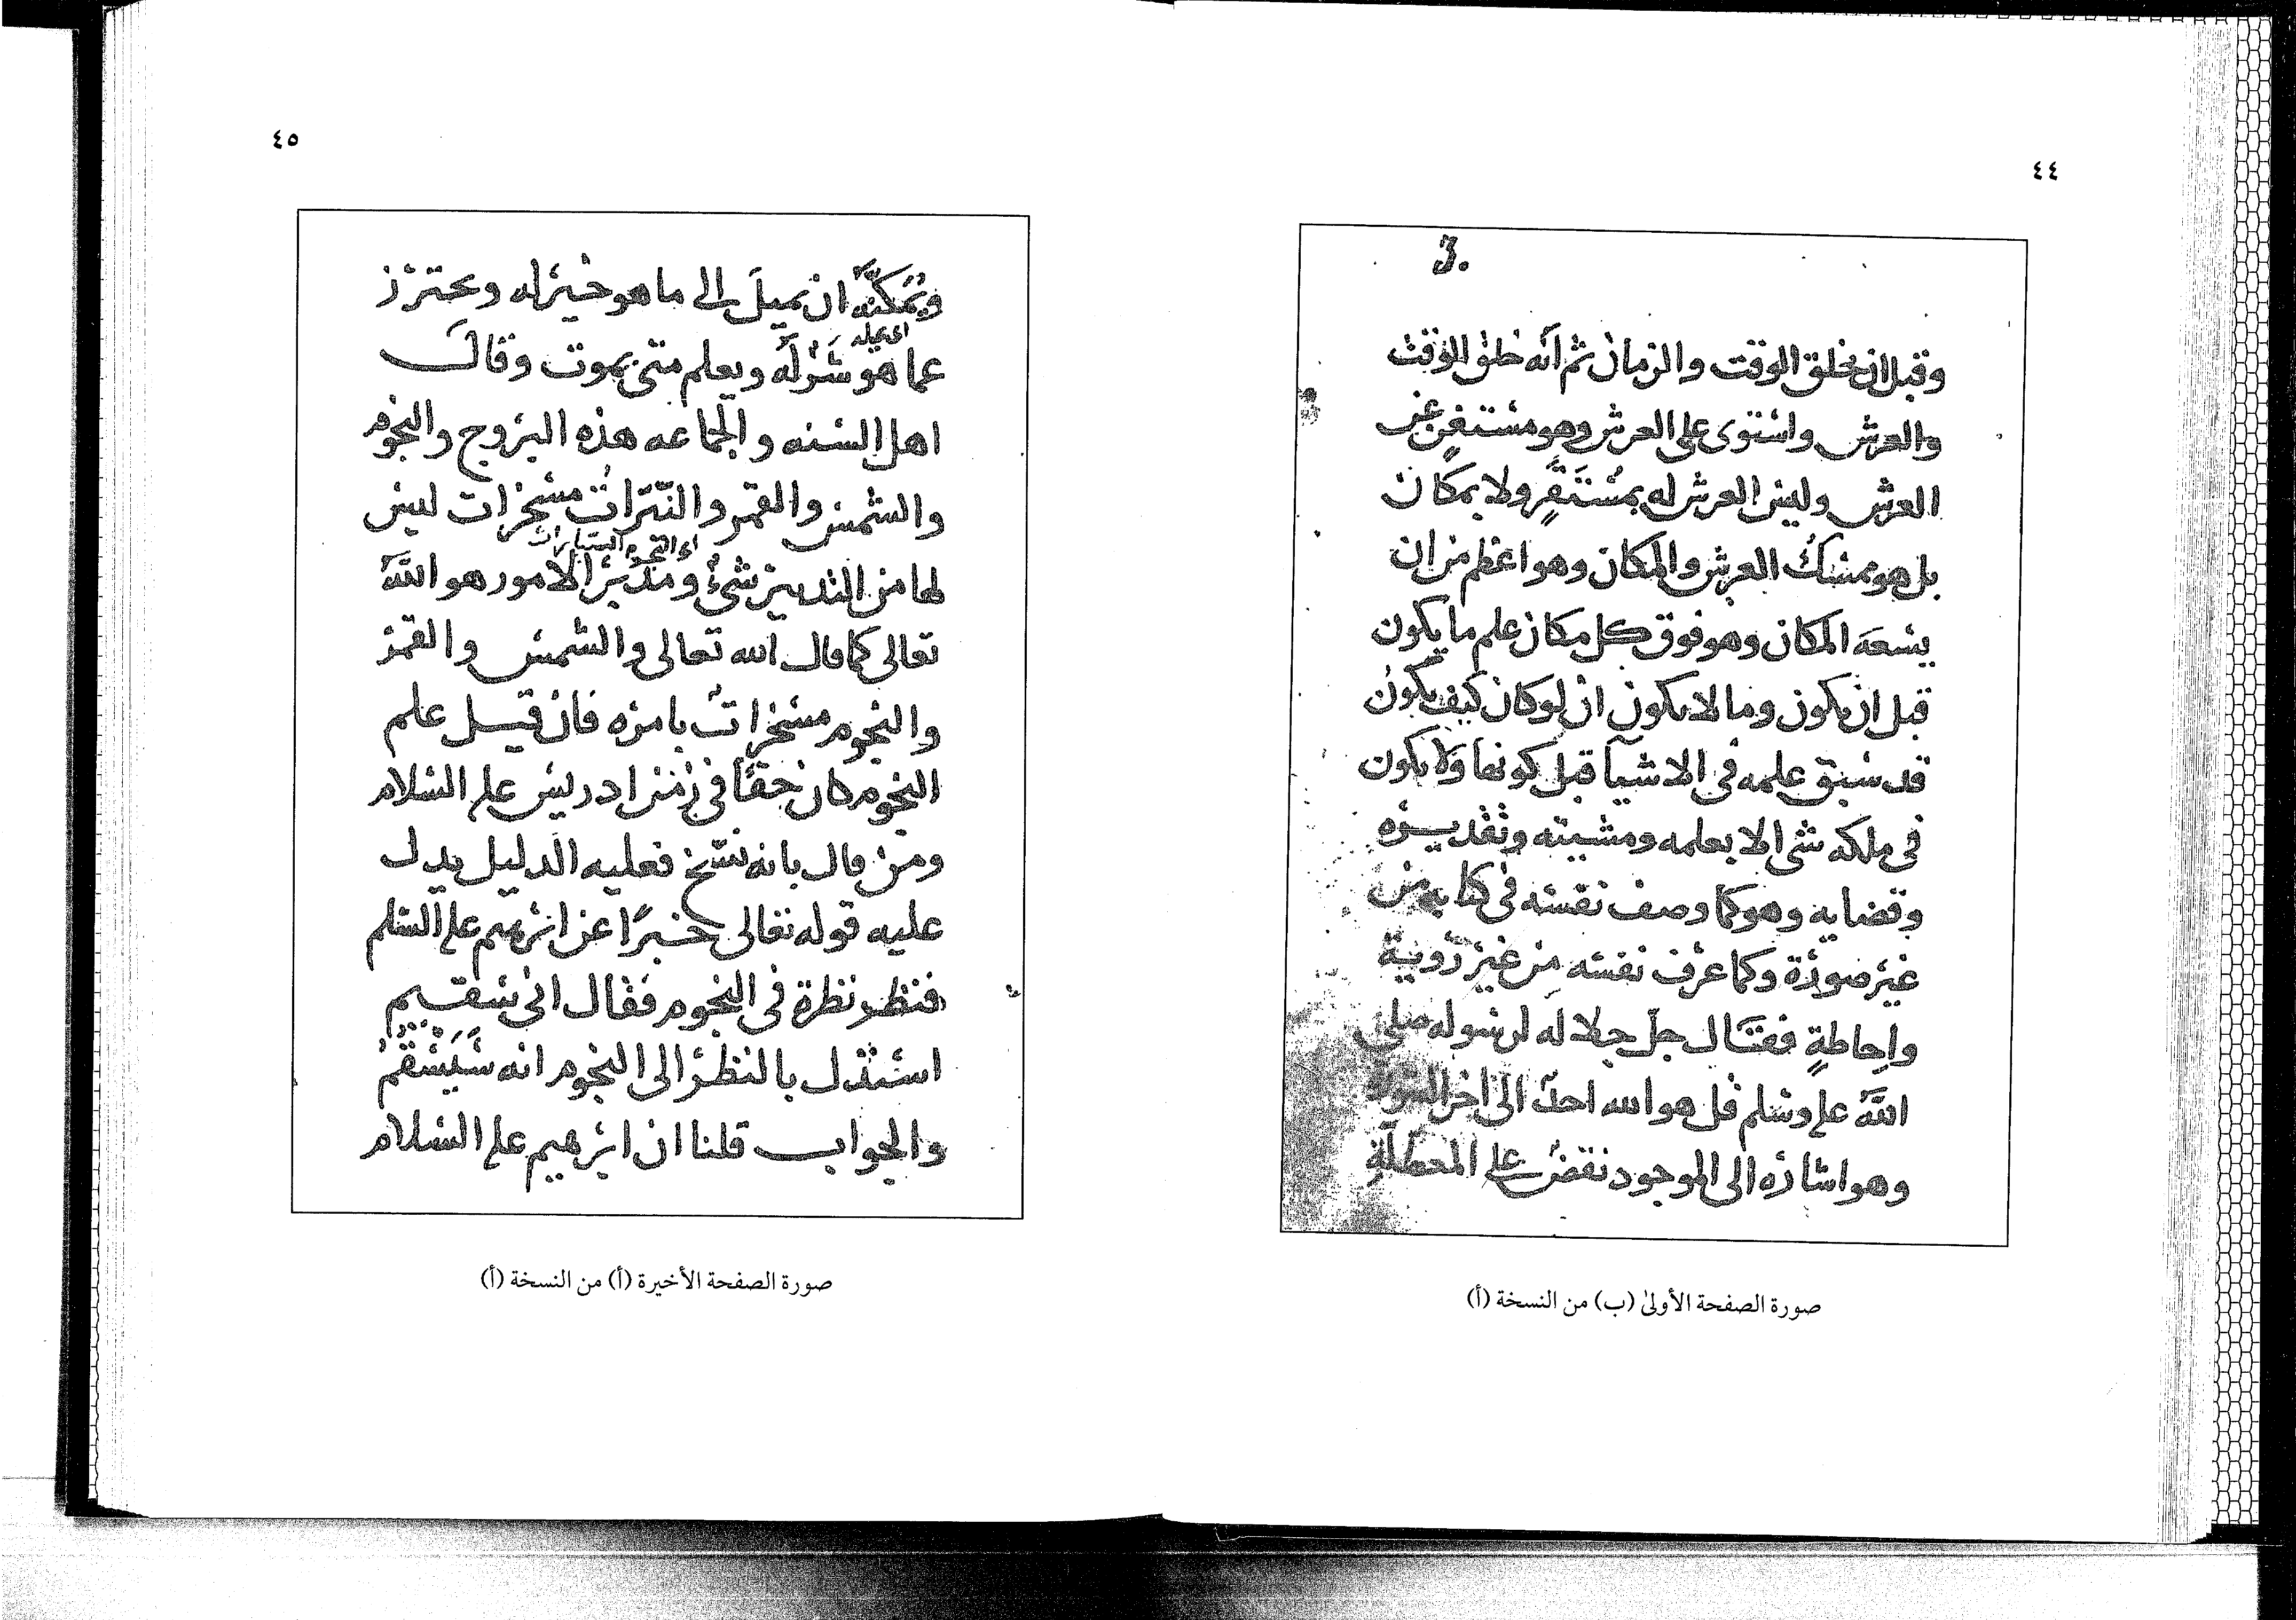 ٤٤
وقبل ان يخلق الوقت والزمان ثم انه خلق الوقت
والعرش واستوى على العرش وهو مستغن عن
العرش وليس العرش له بمُسْتَقَرٍ ولا بمكان
بل هو ممسكُ العرش والمكان وهو اعظم من ان
يسعَهَ المكان وهو فوق كل مكان علم ما يكون
قبل ان يكون وما لا يكون ان لو كان كيف يكونُ
قد سبق علمه فى الاشيآ قبل كونها ولا يكون
فى ملكه شى الا بعلمه ومشيته وتقديره
وقضايه وهو كما وصف نفسه فى كتابه من
غير صورة وكما عرف نفسه مِن غير رُوية
واِحاطةٍ فقال جلّ جلاله لرسوله صلى
اللّه عليه وسلم قل هو الله احدٌ الى اخر السورة
وهو اشاره الى الموجود نقضٌ على المعطّلةِ
صورة الصفحة الأولىٰ (ب) من النسخة (أ)
٤٥
ويُمَكّنه ان يميلَ الى ما هو خيرٌ له ويحترز
عما هو شَرٌ لَه ويعلم متى يموت وقال
اهل السنه والجماعه هذه البروج والنجوم
والشمس والقمر والنيّراتُ مسخرات ليس
اى النجوم السيارات
لها من التدبير شىءٌ ومدبّر الامور هو اللّه
تعالى كما قال الله تعالى والشمس والقمر
والنجوم مسخراتٌ بامره فان قيل علم
النجوم كان حقًا فى زمن ادريس عليه السلام
ومن قال بانه نسخ فعليه الدليل يدل
عليه قوله تعالى خبرًا عن ابرهيم عليه السلم
فنظر نظرة فى النجوم فقال انى سقيم
استدل بالنظر الى النجوم انه سَيَسْقُمُ
والجواب قلنا ان ابرهيم عليه السلام
صورة الصفحة الأخيرة (أ) من النسخة (أ)